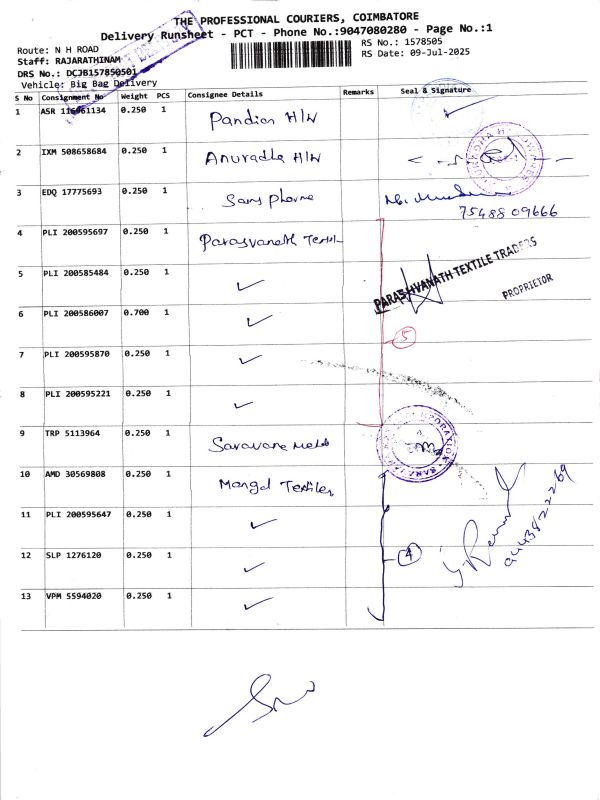 THE PROFESSIONAL COURIERS, COIMBATORE
Delivery Runsheet - PCT - Phone No.:9047080280 - Page No.:1
Route: N H ROAD
RS No.: 1578505
Staff: RAJARATHINAM
RS Date: 09-Jul-2025
DRS No.: DCJB157850501
Vehicle: Big Bag Delivery
S No Consignment No Weight PCS Consignee Details Remarks Seal & Signature
1 ASR 116961134 0.250 1 Pandian H/W ✓
2 IXM 508658684 0.250 1 Anuradha H/W
3 EDQ 17775693 0.250 1
75488 09666
4 PLI 200595697 0.250 1 Parasvanath Textil
PARASHVANATH TEXTILE TRADERS
PROPRIETOR
5 PLI 200585484 0.250 1 ✓
6 PLI 200586007 0.700 1 ✓
5
7 PLI 200595870 0.250 1 ✓
8 PLI 200595221 0.250 1 ✓
9 TRP 5113964 0.250 1 Saravana
10 AMD 30569808 0.250 1 Mangal Textiles
11 PLI 200595647 0.250 1 ✓
12 SLP 1276120 0.250 1 ✓
4
13 VPM 5594020 0.250 1 ✓